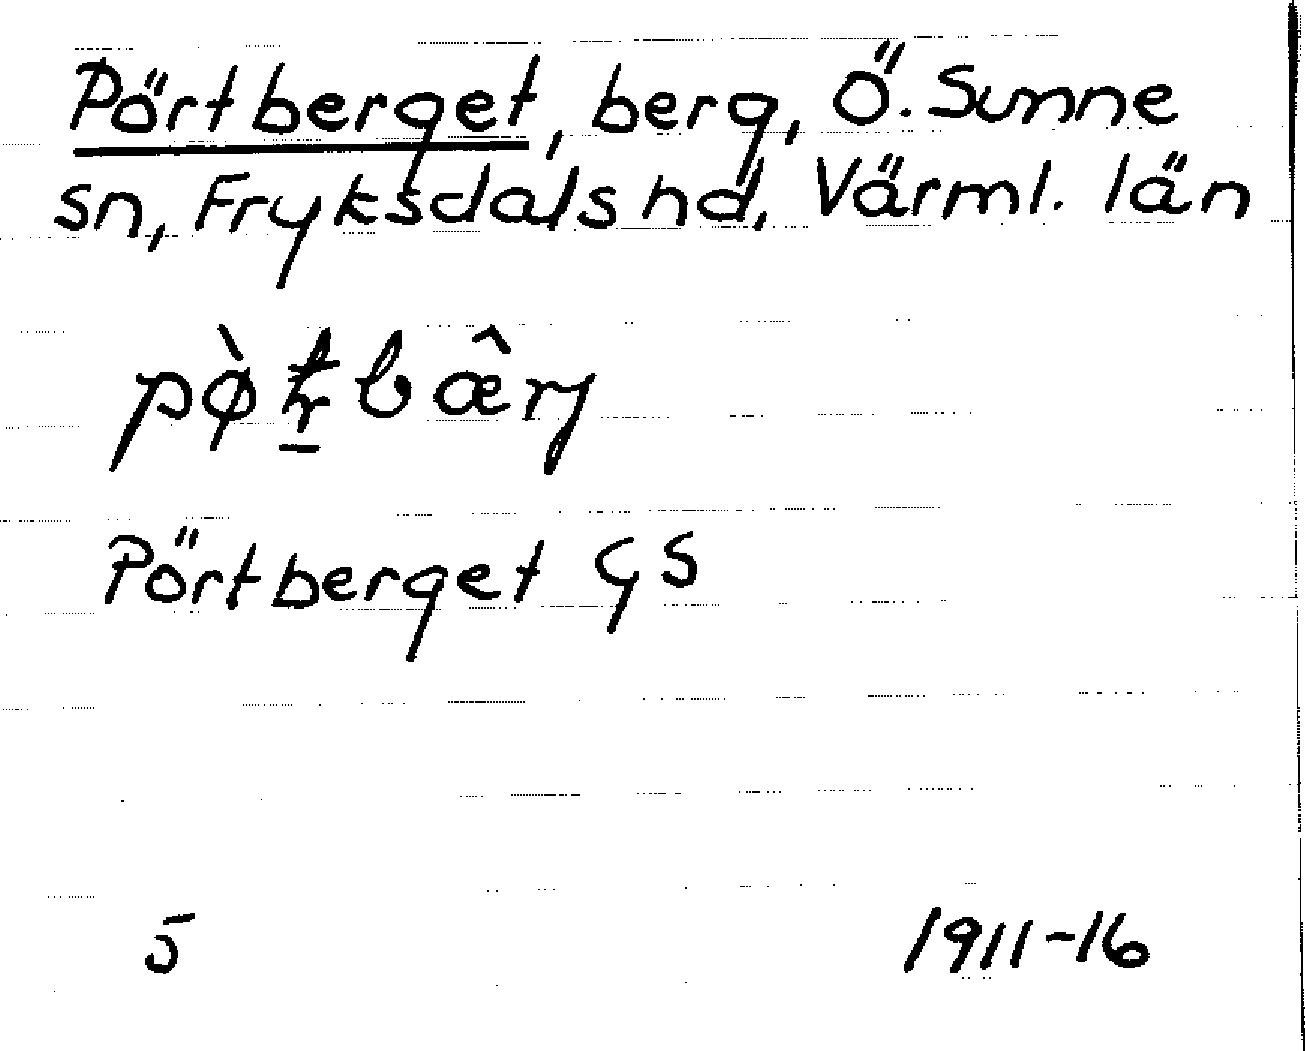 Pörtberget, berg, Ö. Sunne
sn, Fryksdals hd, Värml. län
Pörtberget GS
5 1911-16